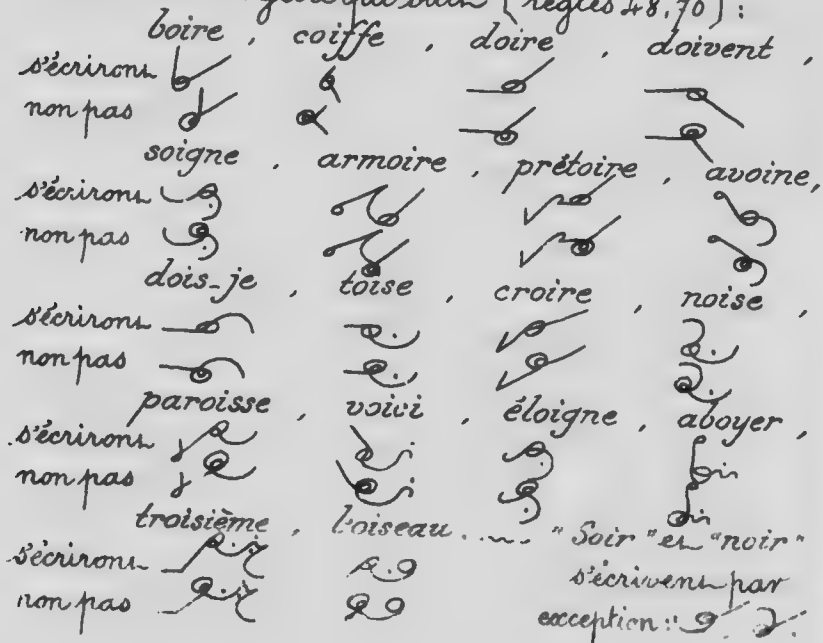 qui suit (règles 48,70):
boire, coiffe, doire, doivent,
s'écriront
non pas
soigne, armoire, prétoire, avoine,
s'écriront
non pas
dois-je, toise, croire, noise,
s'écriront
non pas
paroisse, voici, éloigne, aboyer,
s'écriront
non pas
troisième, l'oiseau..... "Soir" et "noir"
s'écriront s'écrivent par
non pas exception: